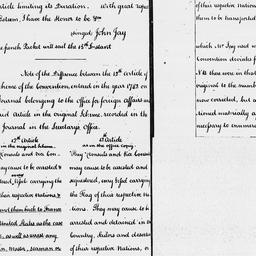 Article limiting its Duration. With great respect
Esteem, I have the Honor to be &c
(signed) John Jay
The french Packet will sail the 15th Instant
Note of the Difference between the 12th Article of
Scheme of the Convention entered on the year 1782 on
Journal belonging to the Office for foreign Affairs and
said Article in the original Scheme, recorded in the
Journal in the Secretary's Office.
12th Article
in the original Scheme.
Consuls and vice Con
may cause to be arrested &
carrying the
their respective Nations &
send them back to France
United States as the case
be, as well as arrest any
Master, seaman or
12 Article
as in the office copy.
They Consuls and vice Consuls
may cause to be arrested and
sequestered, every Vessel carrying
the Flag of their respective Na
tions. They may cause to be
arrested and detained in the
Country, and deserters
of their respective Nations, or
of their respective nations
them to be transported
which Mr Jay
Convention deviates f
that were in that
original to the numb
now corrected, but a
tioned materially a
necessary to enumer